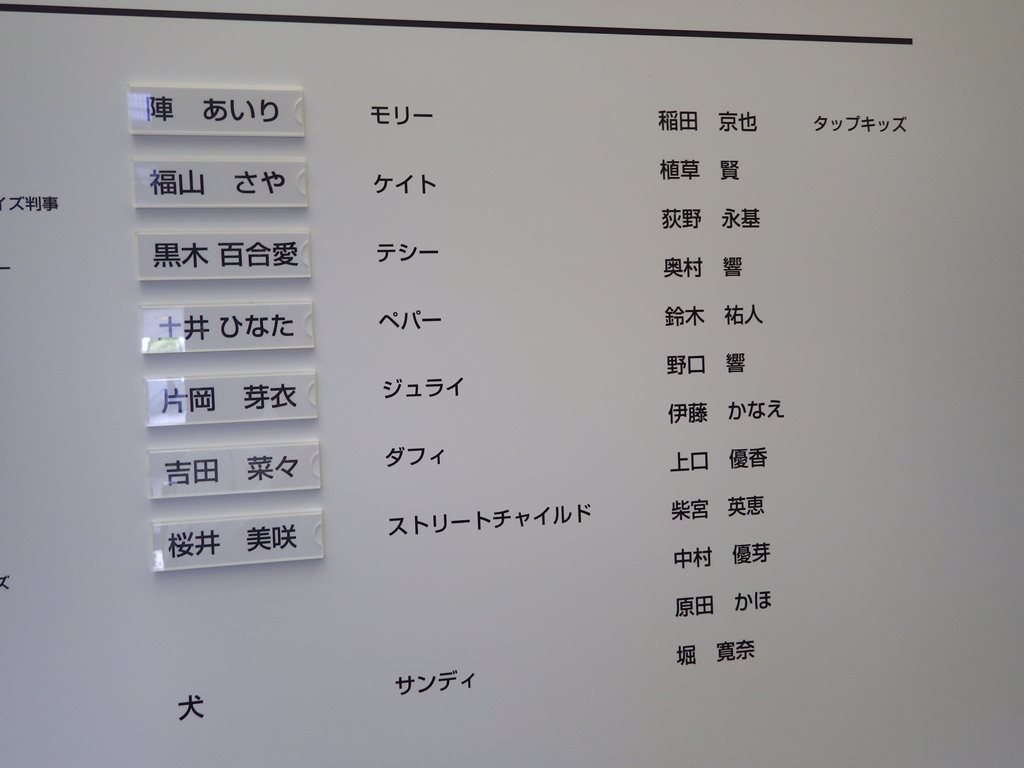 陣 あいり モリー
福山 さや ケイト
黒木 百合愛 テシー
土井 ひなた ペパー
片岡 芽衣 ジュライ
吉田 菜々 ダフィ
桜井 美咲 ストリートチャイルド
犬 サンディ
稲田 京也 タップキッズ
植草 賢
荻野 永基
奥村 響
鈴木 祐人
野口 響
伊藤 かなえ
上口 優香
柴宮 英恵
中村 優芽
原田 かほ
堀 寛奈
イズ判事
ー
ズ